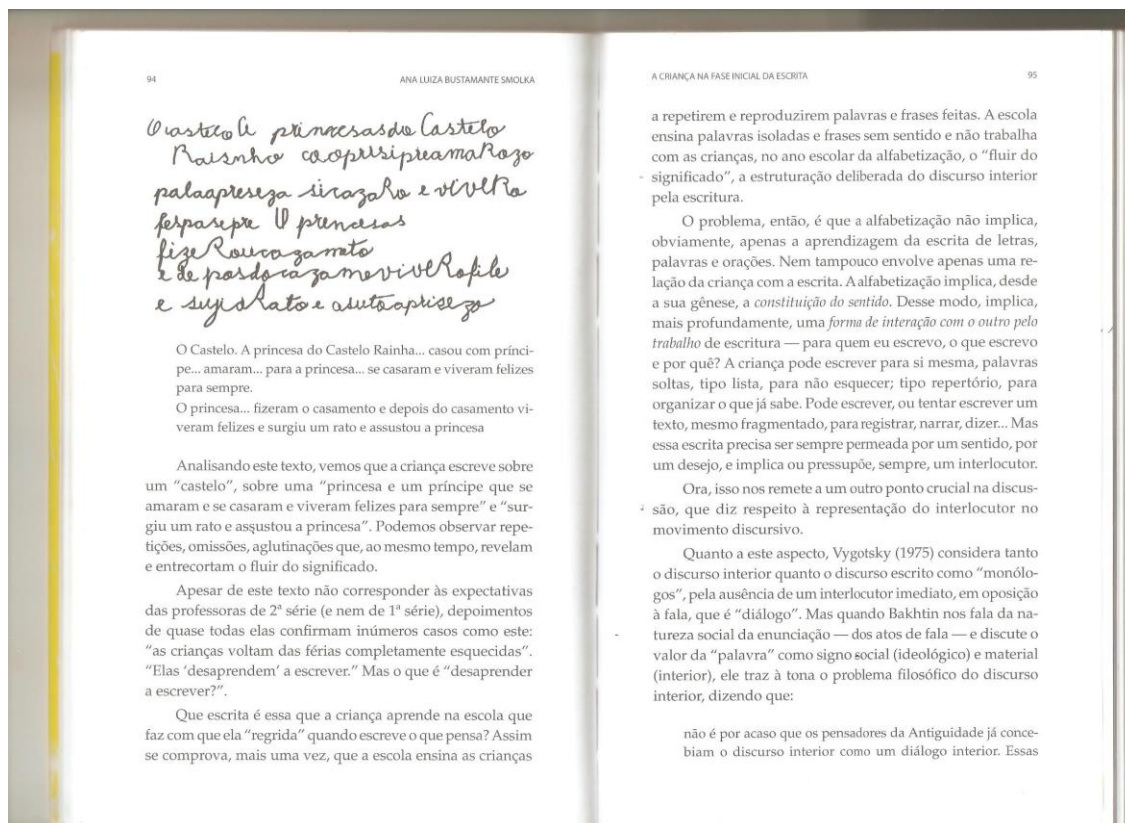 94
ANA LUIZA BUSTAMANTE SMOLKA
O castelo A prinresasdo Castelo
Raisnho
e vivelRo
fespasepre O princesas
e
O Castelo. A princesa do Castelo Rainha... casou com prínci-
pe... amaram... para a princesa... se casaram e viveram felizes
para sempre.
O princesa... fizeram o casamento e depois do casamento vi-
veram felizes e surgiu um rato e assustou a princesa
Analisando este texto, vemos que a criança escreve sobre
um “castelo”, sobre uma “princesa e um príncipe que se
amaram e se casaram e viveram felizes para sempre” e “sur-
giu um rato e assustou a princesa”. Podemos observar repe-
tições, omissões, aglutinações que, ao mesmo tempo, revelam
e entrecortam o fluir do significado.
Apesar de este texto não corresponder às expectativas
das professoras de 2ª série (e nem de 1ª série), depoimentos
de quase todas elas confirmam inúmeros casos como este:
“as crianças voltam das férias completamente esquecidas”.
“Elas ‘desaprendem’ a escrever.” Mas o que é “desaprender
a escrever?”.
Que escrita é essa que a criança aprende na escola que
faz com que ela “regrida” quando escreve o que pensa? Assim
se comprova, mais uma vez, que a escola ensina as crianças
A CRIANÇA NA FASE INICIAL DA ESCRITA
95
a repetirem e reproduzirem palavras e frases feitas. A escola
ensina palavras isoladas e frases sem sentido e não trabalha
com as crianças, no ano escolar da alfabetização, o “fluir do
significado”, a estruturação deliberada do discurso interior
pela escritura.
O problema, então, é que a alfabetização não implica,
obviamente, apenas a aprendizagem da escrita de letras,
palavras e orações. Nem tampouco envolve apenas uma re-
lação da criança com a escrita. A alfabetização implica, desde
a sua gênese, a constituição do sentido. Desse modo, implica,
mais profundamente, uma forma de interação com o outro pelo
trabalho de escritura — para quem eu escrevo, o que escrevo
e por quê? A criança pode escrever para si mesma, palavras
soltas, tipo lista, para não esquecer; tipo repertório, para
organizar o que já sabe. Pode escrever, ou tentar escrever um
texto, mesmo fragmentado, para registrar, narrar, dizer... Mas
essa escrita precisa ser sempre permeada por um sentido, por
um desejo, e implica ou pressupõe, sempre, um interlocutor.
Ora, isso nos remete a um outro ponto crucial na discus-
são, que diz respeito à representação do interlocutor no
movimento discursivo.
Quanto a este aspecto, Vygotsky (1975) considera tanto
o discurso interior quanto o discurso escrito como “monólo-
gos”, pela ausência de um interlocutor imediato, em oposição
à fala, que é “diálogo”. Mas quando Bakhtin nos fala da na-
tureza social da enunciação — dos atos de fala — e discute o
valor da “palavra” como signo social (ideológico) e material
(interior), ele traz à tona o problema filosófico do discurso
interior, dizendo que:
não é por acaso que os pensadores da Antiguidade já conce-
biam o discurso interior como um diálogo interior. Essas